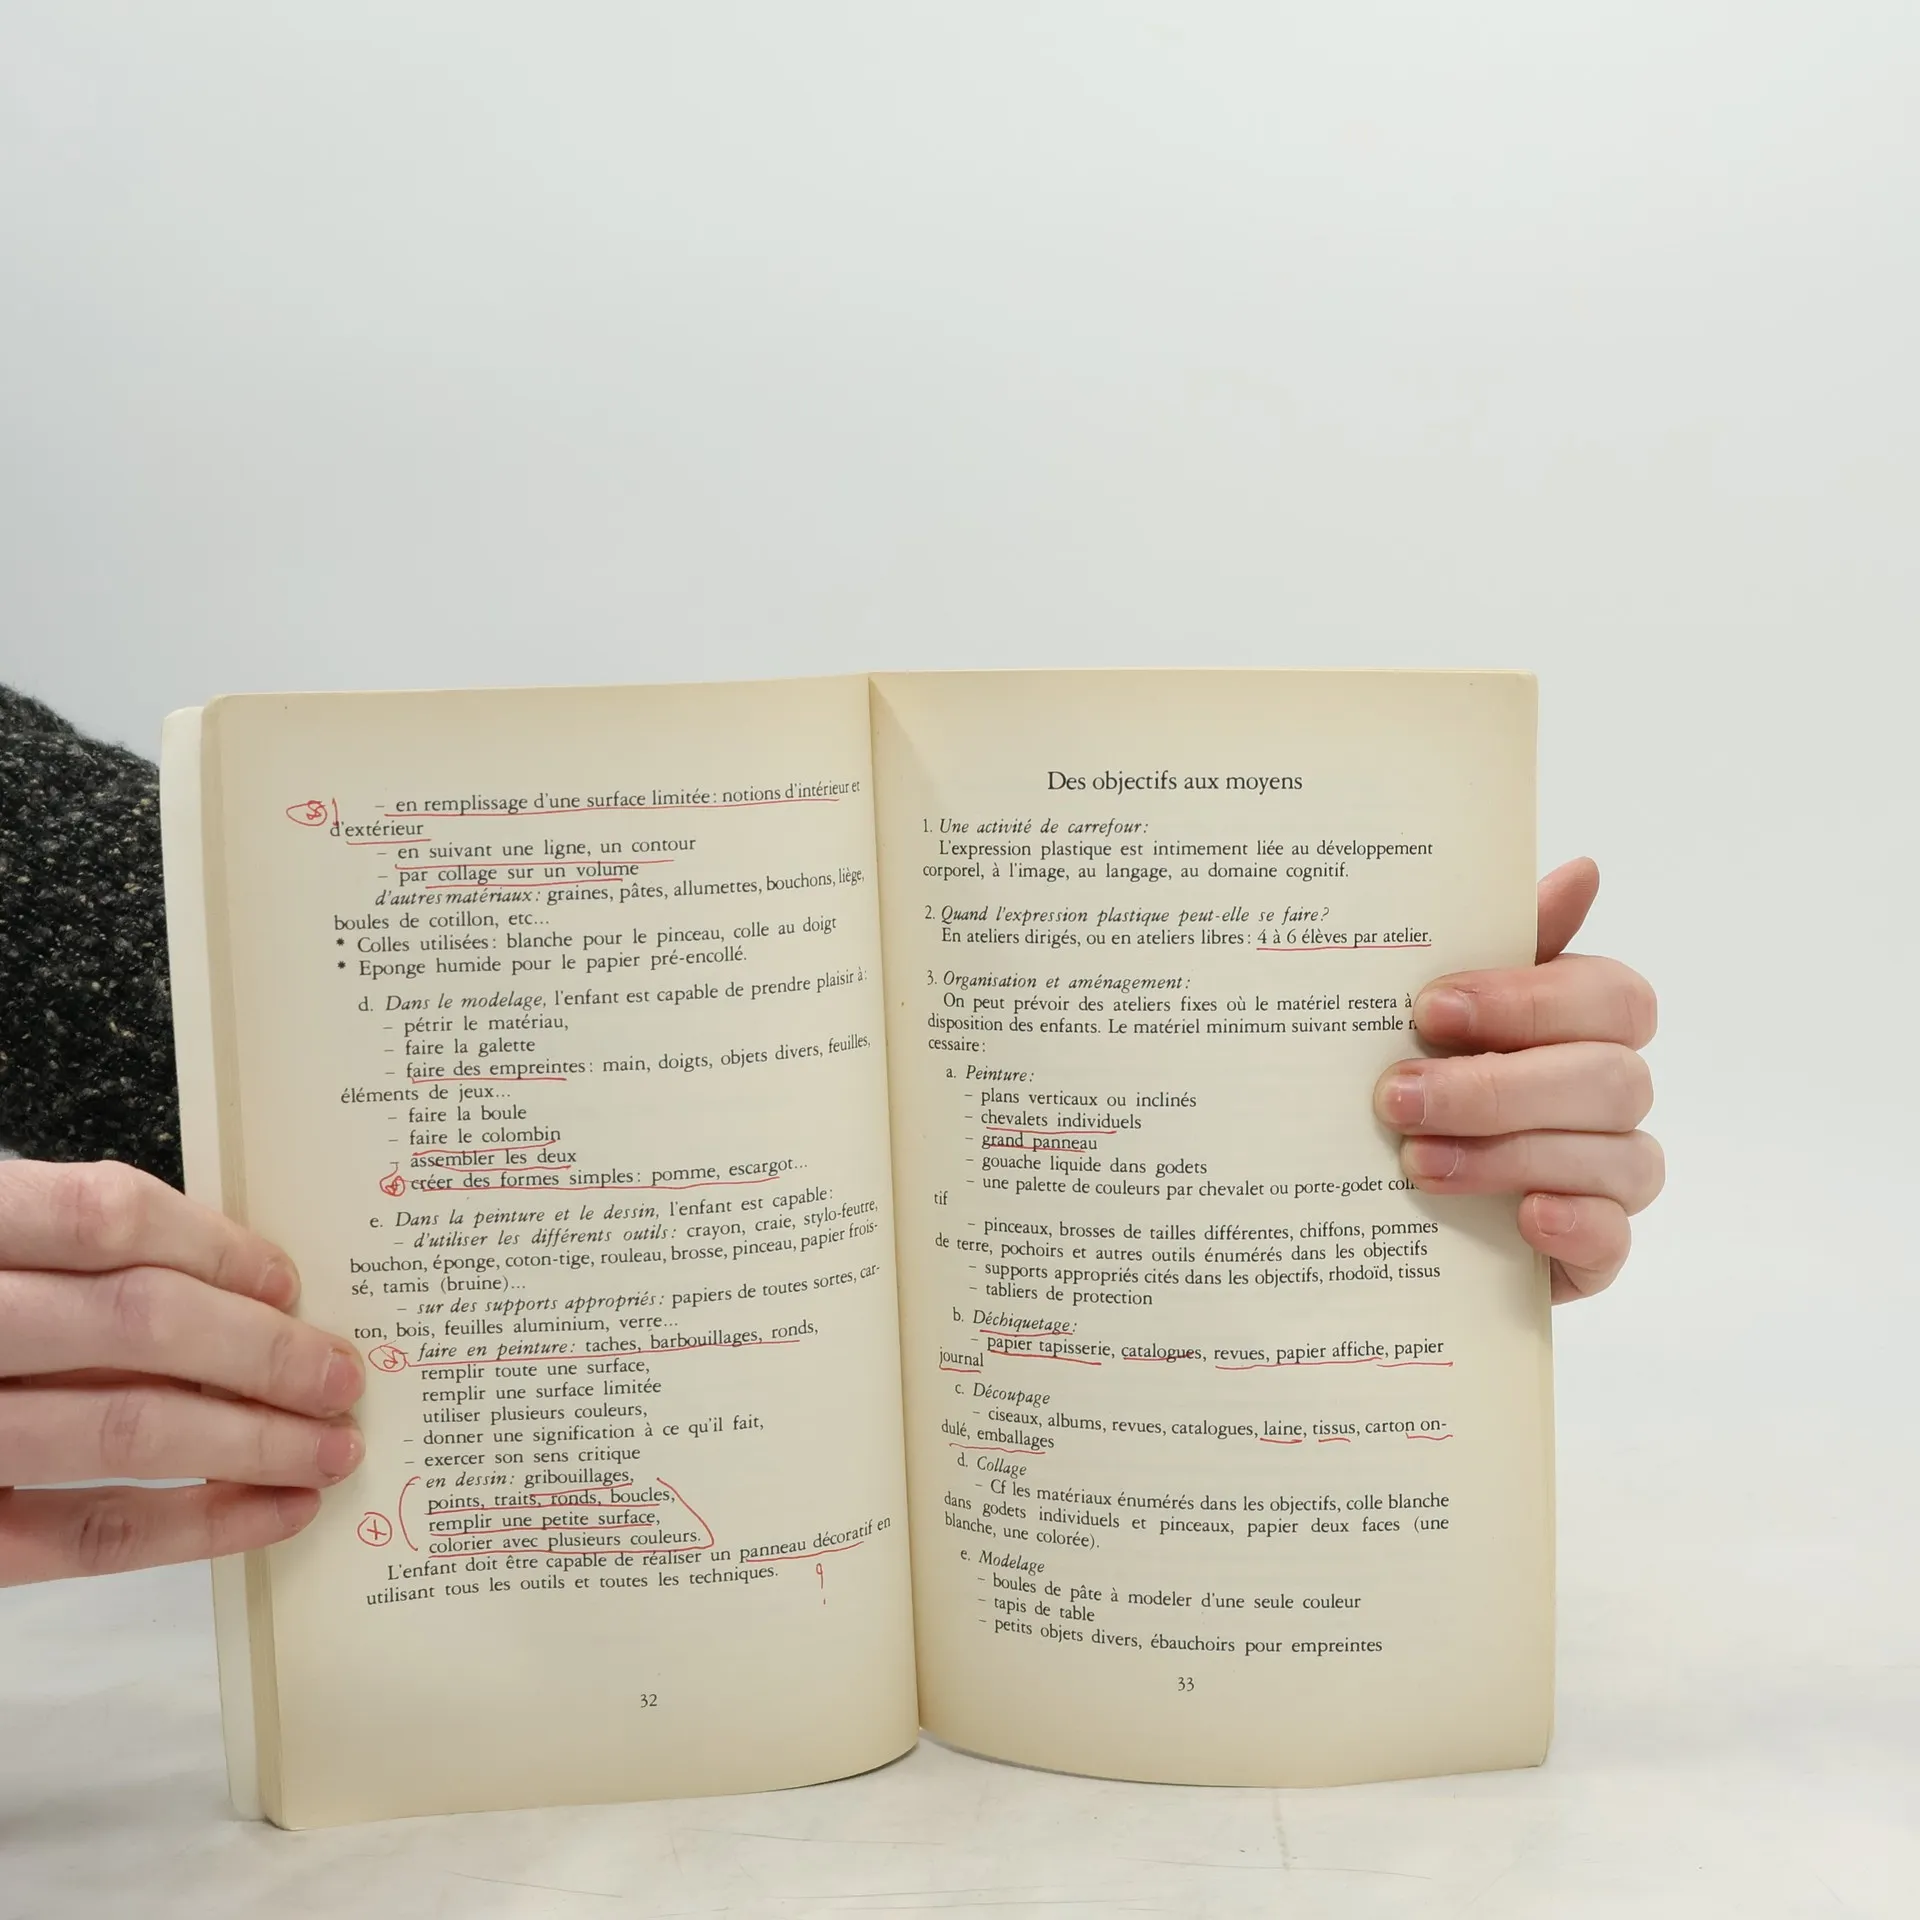 – en remplissage d'une surface limitée : notions d'intérieur et
d'extérieur
– en suivant une ligne, un contour
– par collage sur un volume
d'autres matériaux : graines, pâtes, allumettes, bouchons, liège,
boules de cotillon, etc...
* Colles utilisées : blanche pour le pinceau, colle au doigt
* Eponge humide pour le papier pré-encollé.
d. Dans le modelage, l'enfant est capable de prendre plaisir à :
– pétrir le matériau,
– faire la galette
– faire des empreintes : main, doigts, objets divers, feuilles,
éléments de jeux...
– faire la boule
– faire le colombin
– assembler les deux
créer des formes simples : pomme, escargot...
e. Dans la peinture et le dessin, l'enfant est capable :
– d'utiliser les différents outils : crayon, craie, stylo-feutre,
bouchon, éponge, coton-tige, rouleau, brosse, pinceau, papier frois-
sé, tamis (bruine)...
– sur des supports appropriés : papiers de toutes sortes, car-
ton, bois, feuilles aluminium, verre...
– faire en peinture : taches, barbouillages, ronds,
remplir toute une surface,
remplir une surface limitée
utiliser plusieurs couleurs,
– donner une signification à ce qu'il fait,
– exercer son sens critique
en dessin : gribouillages,
points, traits, ronds, boucles,
remplir une petite surface,
colorier avec plusieurs couleurs.
L'enfant doit être capable de réaliser un panneau décoratif en
utilisant tous les outils et toutes les techniques.
32
Des objectifs aux moyens
1. Une activité de carrefour :
L'expression plastique est intimement liée au développement
corporel, à l'image, au langage, au domaine cognitif.
2. Quand l'expression plastique peut-elle se faire ?
En ateliers dirigés, ou en ateliers libres : 4 à 6 élèves par atelier.
3. Organisation et aménagement :
On peut prévoir des ateliers fixes où le matériel restera à
disposition des enfants. Le matériel minimum suivant semble
cessaire :
a. Peinture :
– plans verticaux ou inclinés
– chevalets individuels
– grand panneau
– gouache liquide dans godets
– une palette de couleurs par chevalet ou porte-godet
tif
– pinceaux, brosses de tailles différentes, chiffons, pommes
de terre, pochoirs et autres outils énumérés dans les objectifs
– supports appropriés cités dans les objectifs, rhodoïd, tissus
– tabliers de protection
b. Déchiquetage :
– papier tapisserie, catalogues, revues, papier affiche, papier
journal
c. Découpage
– ciseaux, albums, revues, catalogues, laine, tissus, carton on-
dulé, emballages
d. Collage
– Cf les matériaux énumérés dans les objectifs, colle blanche
dans godets individuels et pinceaux, papier deux faces (une
blanche, une colorée).
e. Modelage
– boules de pâte à modeler d'une seule couleur
– tapis de table
– petits objets divers, ébauchoirs pour empreintes
33